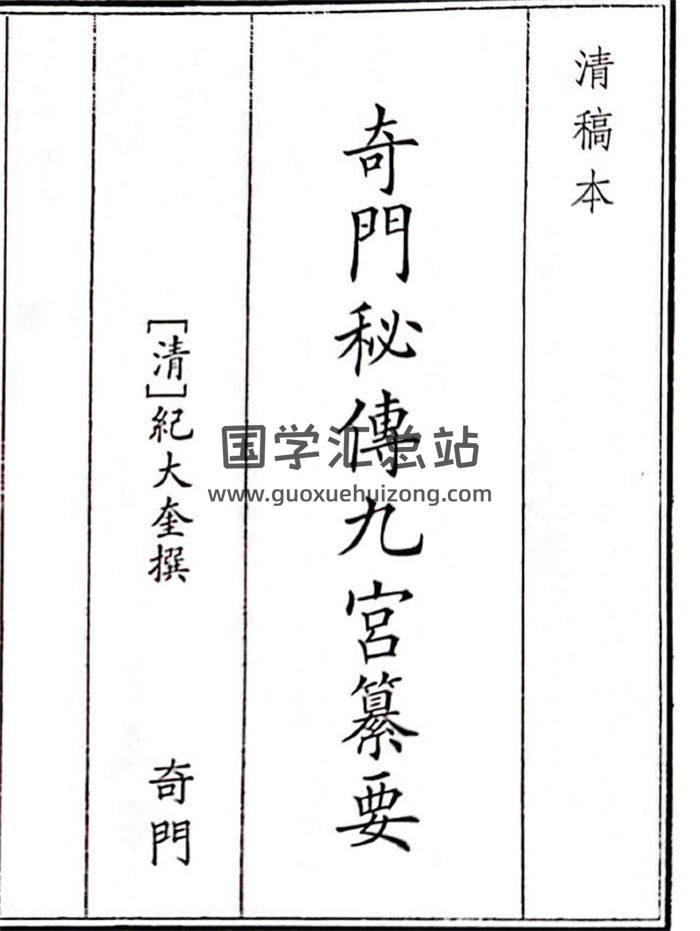 清稿本
奇門秘傳九宮纂要
[清]紀大奎撰
奇門
国学汇总站
www.guoxuehuizong.com